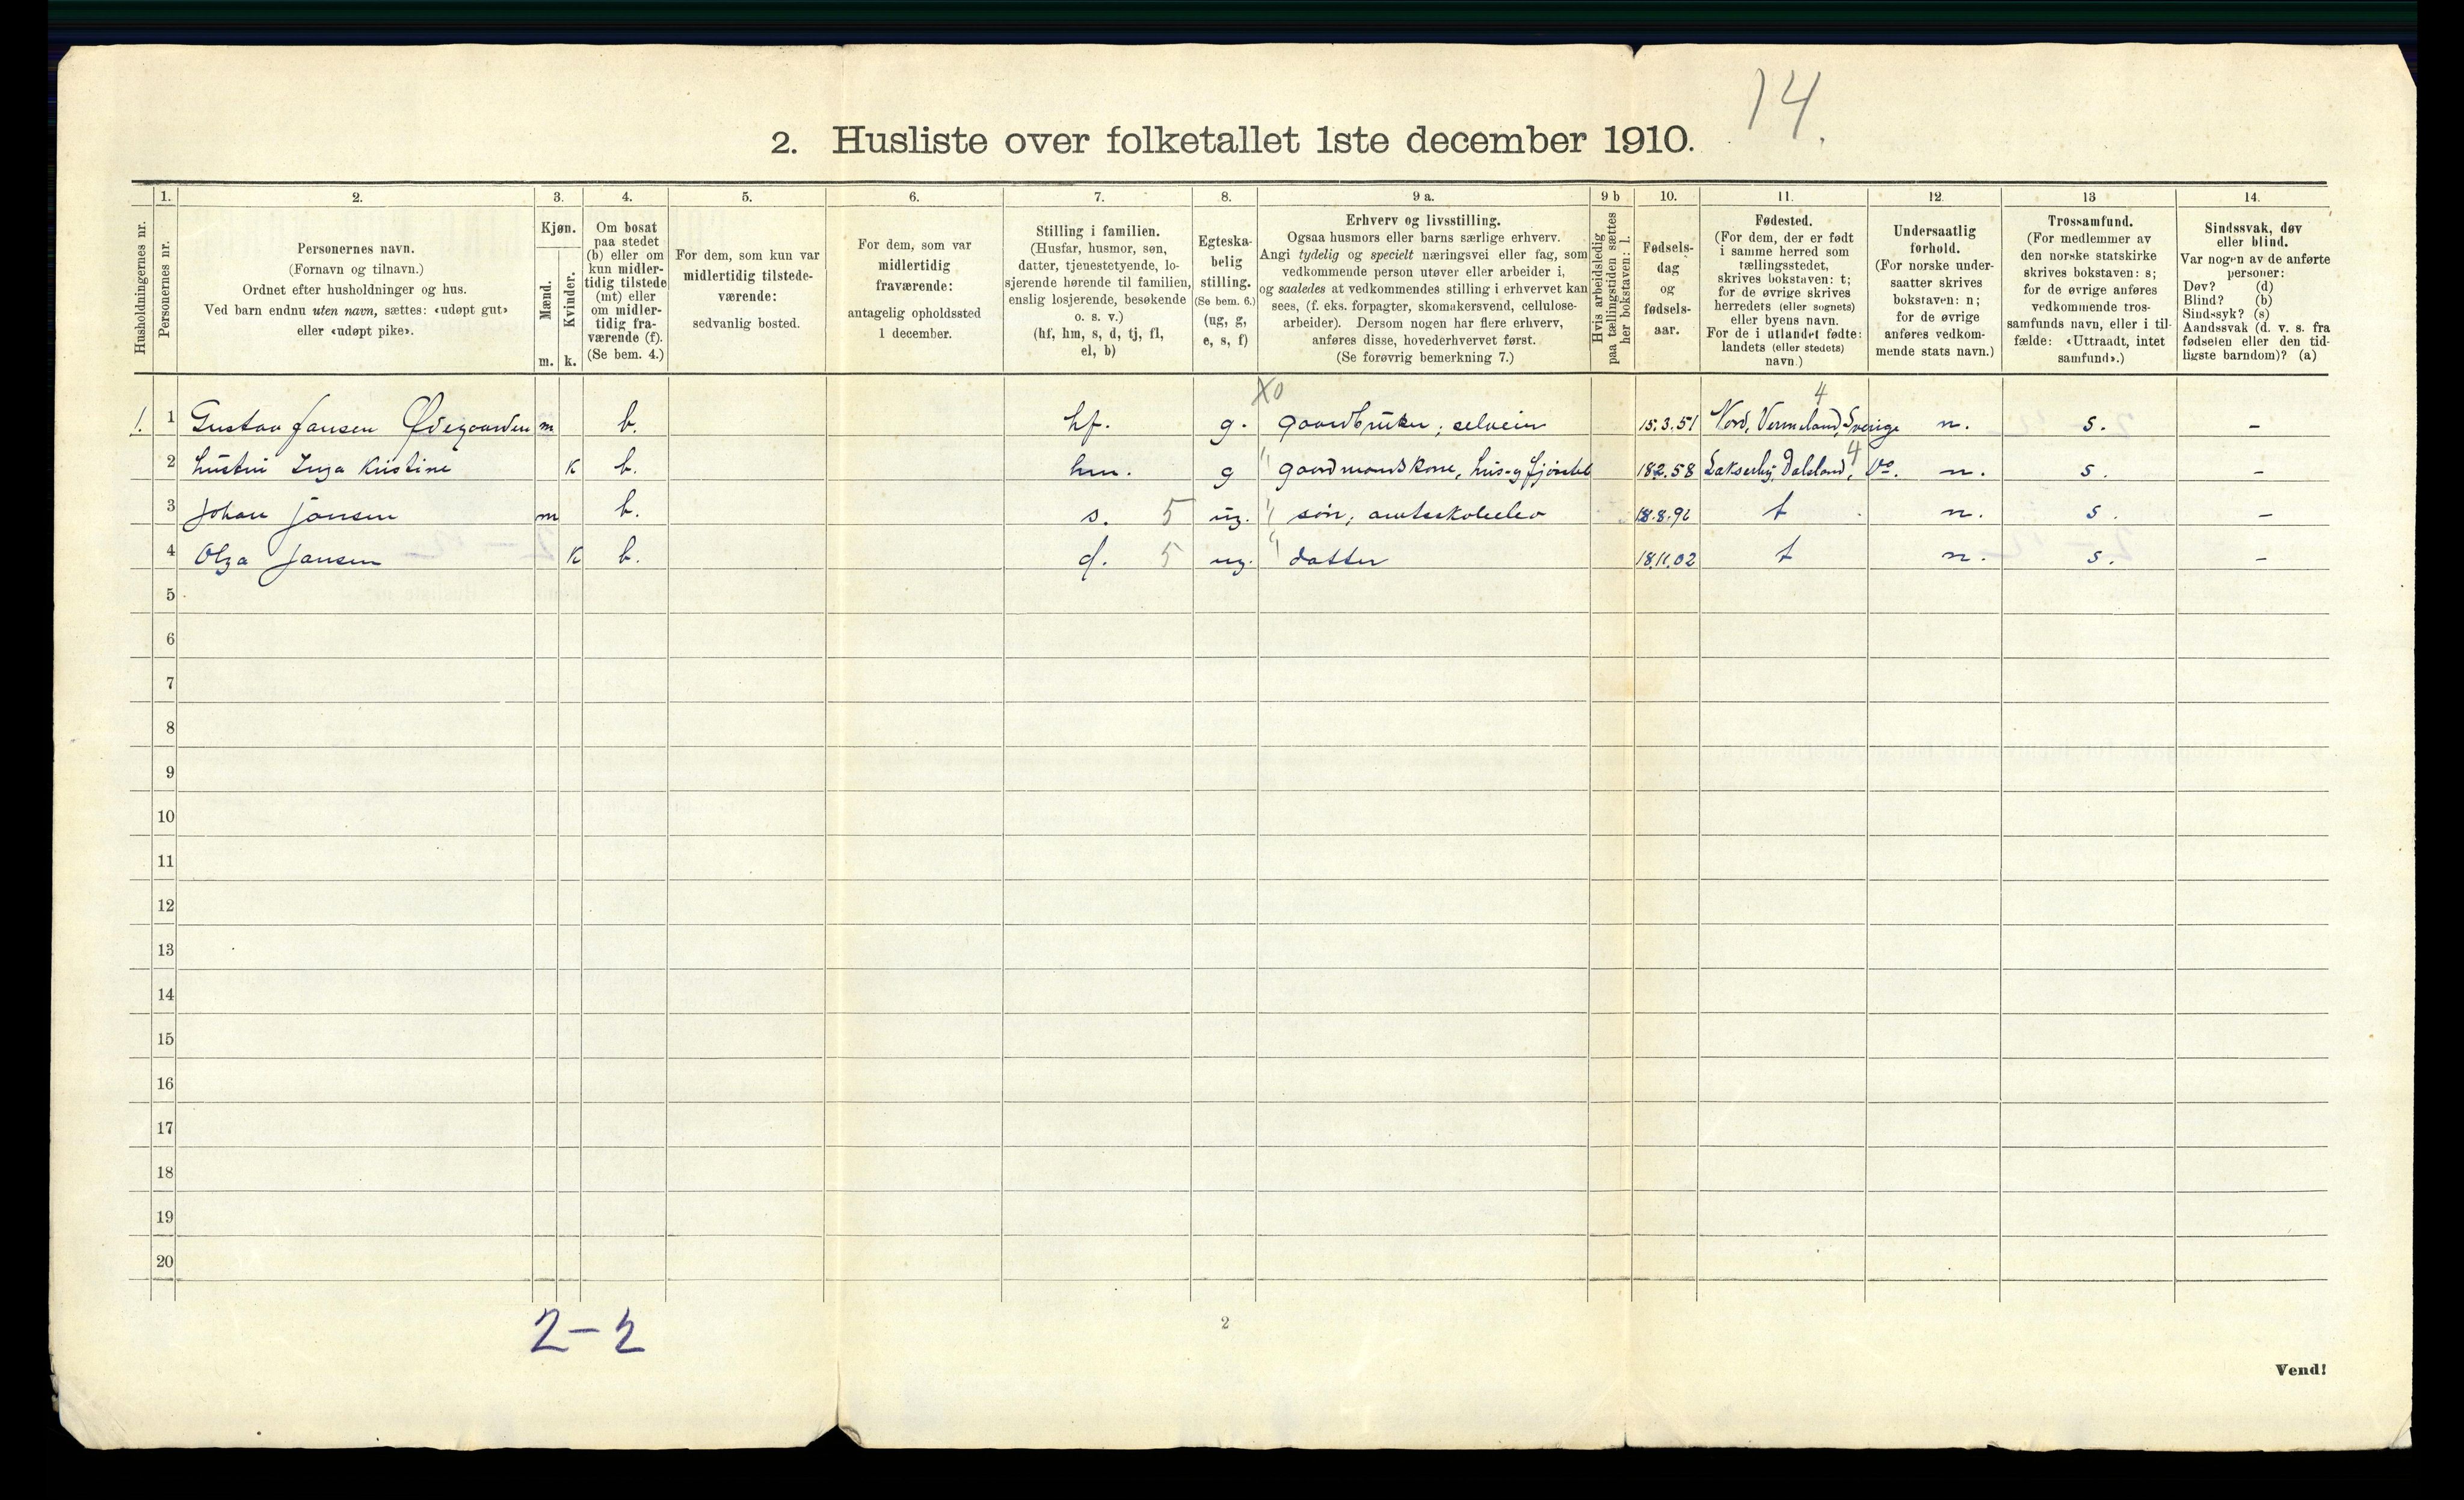 14.
2. Husliste over folketallet 1ste december 1910.
Husholdningernes nr.
1.
Personernes nr.
2.
Personernes navn.
(Fornavn og tilnavn.)
Ordnet efter husholdninger og hus.
Ved barn endnu uten navn, sættes: «udøpt gut»
eller «udøpt pike».
3.
Kjøn.
Mænd.
m.
Kvinder.
k.
4.
Om bosat
paa stedet
(b) eller om
kun midler-
tidig tilstede
(mt) eller
om midler-
tidig fra-
værende (f).
(Se bem. 4.)
5.
For dem, som kun var
midlertidig tilstede-
værende:
sedvanlig bosted.
6.
For dem, som var
midlertidig
fraværende:
antagelig opholdssted
1 december.
7.
Stilling i familien.
(Husfar, husmor, søn,
datter, tjenestetyende, lo-
sjerende hørende til familien,
enslig losjerende, besøkende
o. s. v.)
(hf, hm, s, d, tj, fl,
el, b)
8.
Egteska-
belig
stilling.
(Se bem. 6.)
(ug, g,
e, s, f)
9 a.
Erhverv og livsstilling.
Ogsaa husmors eller barns særlige erhverv.
Angi tydelig og specielt næringsvei eller fag, som
vedkommende person utøver eller arbeider i,
og saaledes at vedkommendes stilling i erhvervet kan
sees, (f. eks. forpagter, skomakersvend, cellulose-
arbeider). Dersom nogen har flere erhverv,
anføres disse, hovederhvervet først.
(Se forøvrig bemerkning 7.)
9 b
Hvis arbeidsledig
paa tællingstiden sættes
her bokstaven: l.
10.
Fødsels-
dag
og
fødsels-
aar.
11.
Fødested.
(For dem, der er født
i samme herred som
tællingsstedet,
skrives bokstaven: t;
for de øvrige skrives
herreders (eller sognets)
eller byens navn.
For de i utlandet fødte:
landets (eller stedets)
navn.)
12.
Undersaatlig
forhold.
(For norske under-
saatter skrives
bokstaven: n;
for de øvrige
anføres vedkom-
mende stats navn.)
13
Trossamfund.
(For medlemmer av
den norske statskirke
skrives bokstaven: s;
for de øvrige anføres
vedkommende tros-
samfunds navn, eller i til-
fælde: «Uttraadt, intet
samfund».)
14.
Sindssvak, døv
eller blind.
Var nogen av de anførte
personer:
Døv? (d)
Blind? (b)
Sindssyk? (s)
Aandssvak (d. v. s. fra
fødselen eller den tid-
ligste barndom)? (a)
X0 4
1. 1 Gustav Jansen Ødegaarden m b. hf. g. gaardbruker, selveier 15.3.51 Nord, Vermeland, Sverige n. s. –
2 hustru Inga Kristine k b. hm. g " gaardmandskone, hus- og fjøsstel 18.2.58 Dalsland, 4 Do. n. s. –
3 Johan Jansen m b. s. 5 ug. " søn, amtsskoleelev 18.8.92 t n. s. –
4 Olga Jansen k b. d. 5 ug. " datter 18.11.02 t n. s. –
5
6
7
8
9
10
11
12
13
14
15
16
17
18
19
20
2-2
2
Vend!